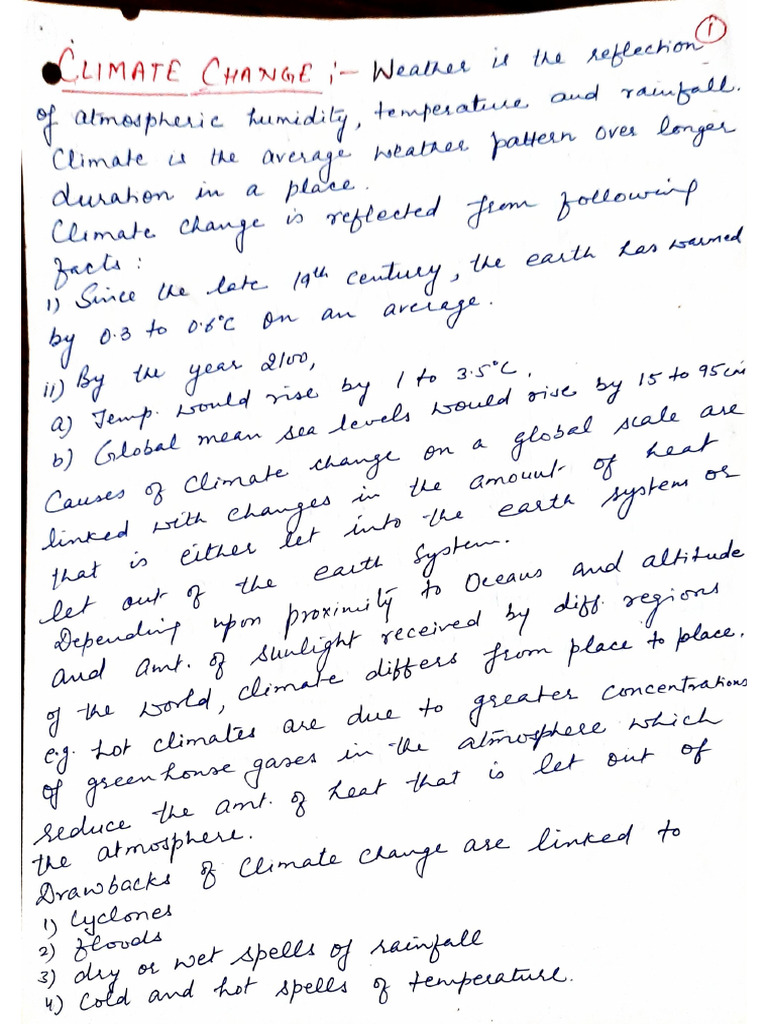 1
CLIMATE CHANGE :- Weather is the reflection
of atmospheric humidity, temperature and rainfall.
Climate is the average weather pattern over longer
duration in a place.
Climate change is reflected from following
facts :
i) Since the late 19th century, the earth has warmed
by 0.3 to 0.6°C on an average.
ii) By the year 2100,
a) Temp. would rise by 1 to 3.5°C.
b) Global mean sea levels would rise by 15 to 95cm
Causes of climate change on a global scale are
linked with changes in the amount of heat
that is either let into the earth system or
let out of the earth system.
Depending upon proximity to Oceans and altitude
and amt. of sunlight received by diff. regions
of the world, climate differs from place to place.
e.g. hot climates are due to greater concentrations
of greenhouse gases in the atmosphere which
reduce the amt. of heat that is let out of
the atmosphere.
Drawbacks of Climate change are linked to
1) Cyclones
2) floods
3) dry or wet spells of rainfall
4) Cold and hot spells of temperature.